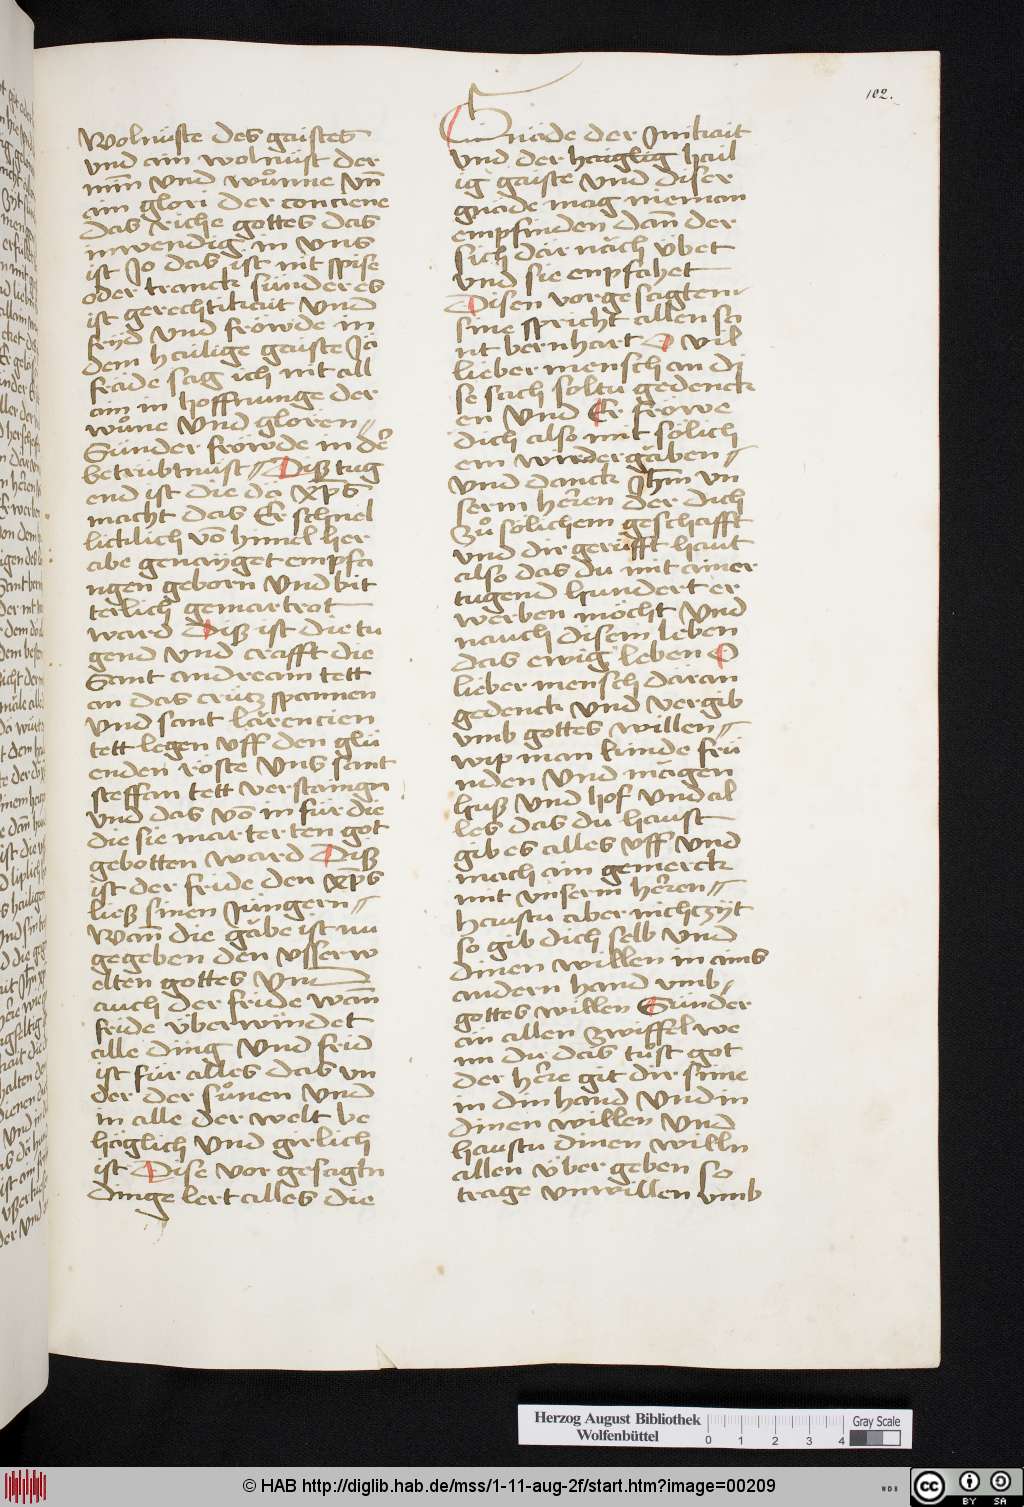 102.
Wolnüste des gaistes
vnd ain wolnust der
minn vnd wůnne vn̄
ain glori der conciene
das riche gottes das
inwendig in vns
ist Jo das ist nit spise
oder tranck sünder es
ist gerechtikait vnd
fryd vnd fröwde in
dem hailige gaiste Jo
fräide sag ich nit all
ain in hoffnunge der
wůne vnd gloren
Sünder fröwde in der
betrübtnust Diß tug
end ist die da xp̄s
macht das Er schnel
licklich vō himel her
abe genayget empfa
ngen geborn vnd bit
terlich gemartrot
ward Diß ist die tu
gend vnd crafft die
Sant andream tett
an das crütz spannen
vnd sant larencien
tett legen vff den glü
enden röste vns sant
steffan tett verstaingn
vnd das vō in für die
die sie marterten got
gebotten ward Diß
ist der fride den xp̄s
ließ sinen Jüngern
Wann die gäbe ist nu
gegeben den vsserw
elten gottes vnd
auch der fride wann
fride überwindet
alle ding vnd frid
ist für alles das vn
der der sůnen vnd
in alle der welt be
häglich vnd girlich
ist Dise vor gesagtn
dinge lert alles die
Gnäde der Jnnikait
vnd der haiglig hail
ig gaiste vnd diser
gnäde mag nieman
empfinden dann der
sich dar näch übet
vnd sie enpfahet
Disen vorgesagtem
sine spricht allen sa
nt bernhart O vil
lieber mensch an di
se sach soltu gedenck
en vnd Er fröwe
dich also mit sölich
em widergaben
vnd danck Jhm vn
serm herren der dich
zů sölichem geschafft
vnd dir gerüfft haut
also das du mit ainer
tugend hundert er
werben möcht vnd
nauch disem leben
das ewig leben O
lieber mensch daran
gedenck vnd vergib
vmb gottes willen
wip man kinde frü
nden vnd mägen
huß vnd hof vnd al
les das du haust
gib es alles vff vnd
mach ain gemerck
mit vnserm herren
haustu aber nichtzyt
so gib dich selb vnd
dinen willen in ains
andern hand vmb
gottes willen Sünder
an allen zwiffel we
nn du das tůst got
der here git dir sine
in din hand vnd in
dinen willen vnd
haustu dinen willn
allen über geben so
trage vnwillen vmb
Herzog August Bibliothek
Wolfenbüttel
0 1 2 3 4
Gray Scale
© HAB http://diglib.hab.de/mss/1-11-aug-2f/start.htm?image=00209
WDB
cc BY SA